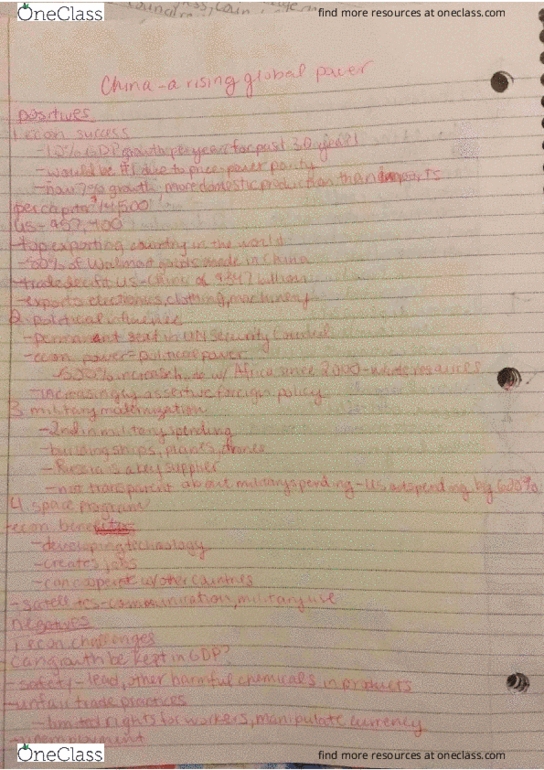 OneClass
find more resources at oneclass.com
China - a rising global power
positives
1. econ success
-10% GDP growth per year for past 30 years!
-would be #1 due to price power parity
-now 7% growth more domestic production than imports
per capita $14,500
US-
-top exporting country in the world
of Walmart goods made in China
-trade deficit US-China of billion
-exports electronics, clothing, machinery
2. political influence
-permanent seat in UN Security Council
-econ power = political power
increase w/ Africa since 2000 - resources
-increasingly assertive foreign policy
3. military modernization
-2nd in military spending
-building ships, planes, drones
-Russia is a key supplier
-not transparent about military spending - US outspending by 600%
4. space program
-econ benefits
-developing technology
-creates jobs
-can cooperate w/ other countries
-satellites - communication, military use
negatives
1 econ challenges
can growth be kept in GDP?
-safety - lead, other harmful chemicals in products
-unfair trade practices
-limited rights for workers, manipulate currency
-unemployment
OneClass
find more resources at oneclass.com